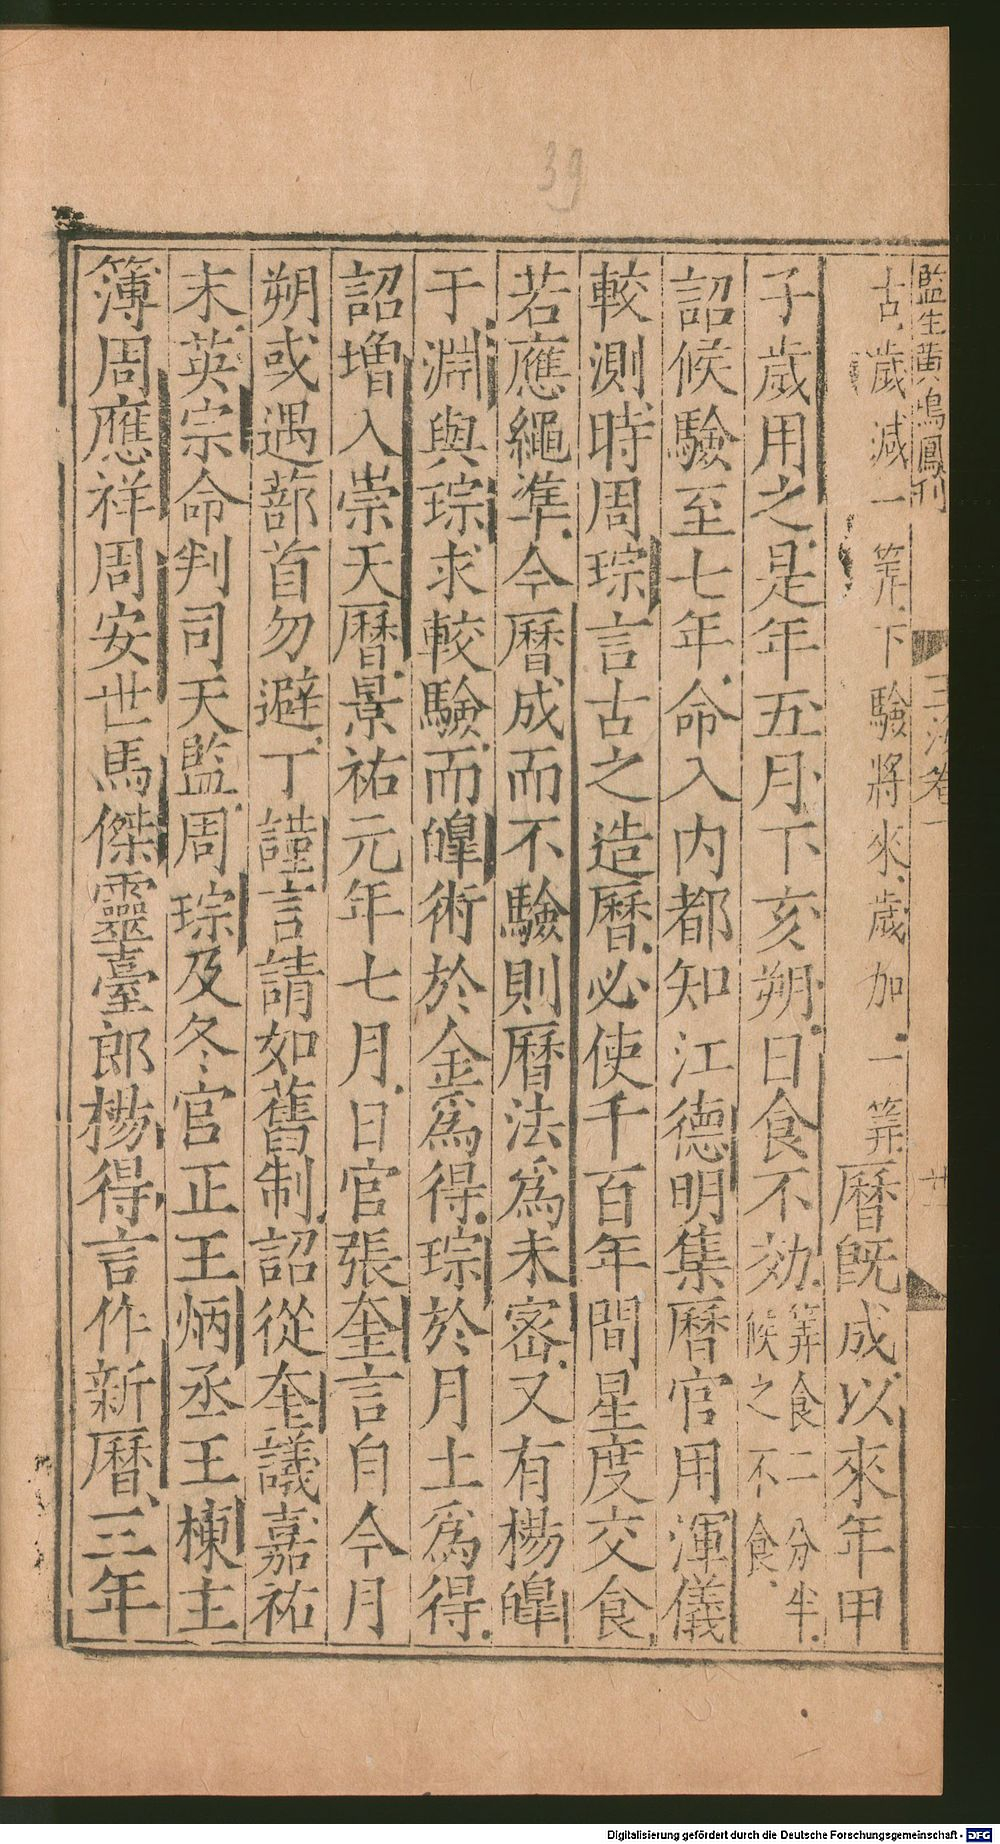 39
監生黃鳴鳳刊
卷一
古歲減一筭下驗將來歲加一筭曆旣成以來年甲
子歲用之是年五月丁亥朔日食不効筭食二分半候之不食
詔候驗至七年命入内都知江德明集曆官用渾儀
較測時周琮言古之造曆必使千百年間星度交食
若應繩準今曆成而不驗則曆法爲未密又有楊皥
于淵與琮求較驗而皥術於金爲得琮於月土爲得
詔增入崇天曆景祐元年七月日官張奎言自今月
朔或遇蔀首勿避丁謹言請如舊制詔從奎議嘉祐
末英宗命判司天監周琮及冬官正王炳丞王棟主
簿周應祥周安世馬傑靈臺郎楊得言作新曆三年
Digitalisierung gefördert durch die Deutsche Forschungsgemeinschaft - DFG